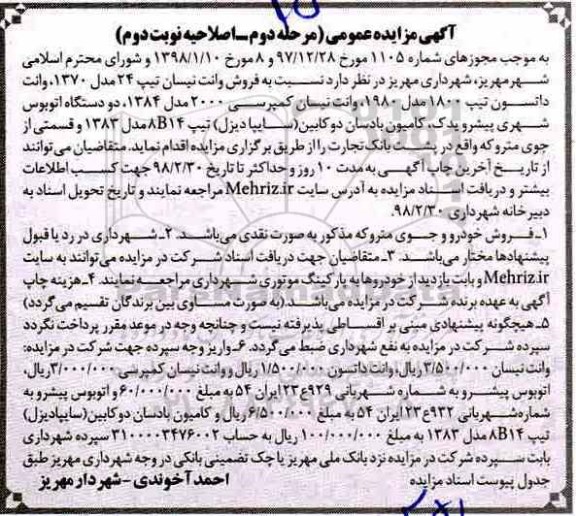 آگهی مزایده عمومی (مرحله دوم ـ اصلاحیه نوبت دوم)
به موجب مجوزهای شماره ۱۱۰۵ مورخ ۹۷/۱۲/۲۸ و ۸ مورخ ۱۳۹۸/۱/۱۰ و شورای محترم اسلامی
شهر مهریز، شهرداری مهریز در نظر دارد نسبت به فروش وانت نیسان تیپ ۲۴ مدل ۱۳۷۰، وانت
داتسون تیپ ۱۸۰۰ مدل ۱۹۸۰، وانت نیسان کمپرسی ۲۰۰۰ مدل ۱۳۸۴، دو دستگاه اتوبوس
شهری پیشرو یدک، کامیون بادسان دو کابین (سایپا دیزل) تیپ ۸B۱۴ مدل ۱۳۸۳ و قسمتی از
جوی متروکه واقع در پشت بانک تجارت را از طریق برگزاری مزایده اقدام نماید. متقاضیان می‌توانند
از تاریخ آخرین چاپ آگهی به مدت ۱۰ روز و حداکثر تا تاریخ ۹۸/۲/۳۰ جهت کسب اطلاعات
بیشتر و دریافت اسناد مزایده به آدرس سایت Mehriz.ir مراجعه نمایند و تاریخ تحویل اسناد به
دبیرخانه شهرداری ۹۸/۲/۳۰.
۱ـ فروش خودرو و جوی متروکه مذکور به صورت نقدی می‌باشد. ۲ـ شهرداری در رد یا قبول
پیشنهادها مختار می‌باشد. ۳ـ متقاضیان جهت دریافت اسناد شرکت در مزایده می‌توانند به سایت
Mehriz.ir و بابت بازدید از خودروها به پارکینگ موتوری شهرداری مراجعه نمایند. ۴ـ هزینه چاپ
آگهی به عهده برنده شرکت در مزایده می‌باشد. (به صورت مساوی بین برندگان تقسیم می‌گردد)
۵ـ هیچگونه پیشنهادی مبنی بر اقساطی پذیرفته نیست و چنانچه وجه در موعد مقرر پرداخت نگردد
سپرده شرکت در مزایده به نفع شهرداری ضبط می‌گردد. ۶ـ واریز وجه سپرده جهت شرکت در مزایده:
وانت نیسان ۳/۵۰۰/۰۰۰ ریال، وانت داتسون ۱/۵۰۰/۰۰۰ ریال و وانت نیسان کمپرسی ۳/۰۰۰/۰۰۰ ریال،
اتوبوس پیشرو به شماره شهربانی ۹۲۹ع۲۳ ایران ۵۴ به مبلغ ۶۰/۰۰۰/۰۰۰ و اتوبوس پیشرو به
شماره شهربانی ۹۳۲ع۲۳ ایران ۵۴ به مبلغ ۶/۵۰۰/۰۰۰ ریال و کامیون بادسان دو کابین (سایپادیزل)
تیپ ۸B۱۴ مدل ۱۳۸۳ به مبلغ ۱۰۰/۰۰۰/۰۰۰ ریال به حساب ۳۱۰۰۰۰۳۴۷۶۰۰۲ سپرده شهرداری
بابت سپرده شرکت در مزایده نزد بانک ملی مهریز یا چک تضمینی بانکی در وجه شهرداری مهریز طبق
جدول پیوست اسناد مزایده
احمد آخوندی - شهردار مهریز